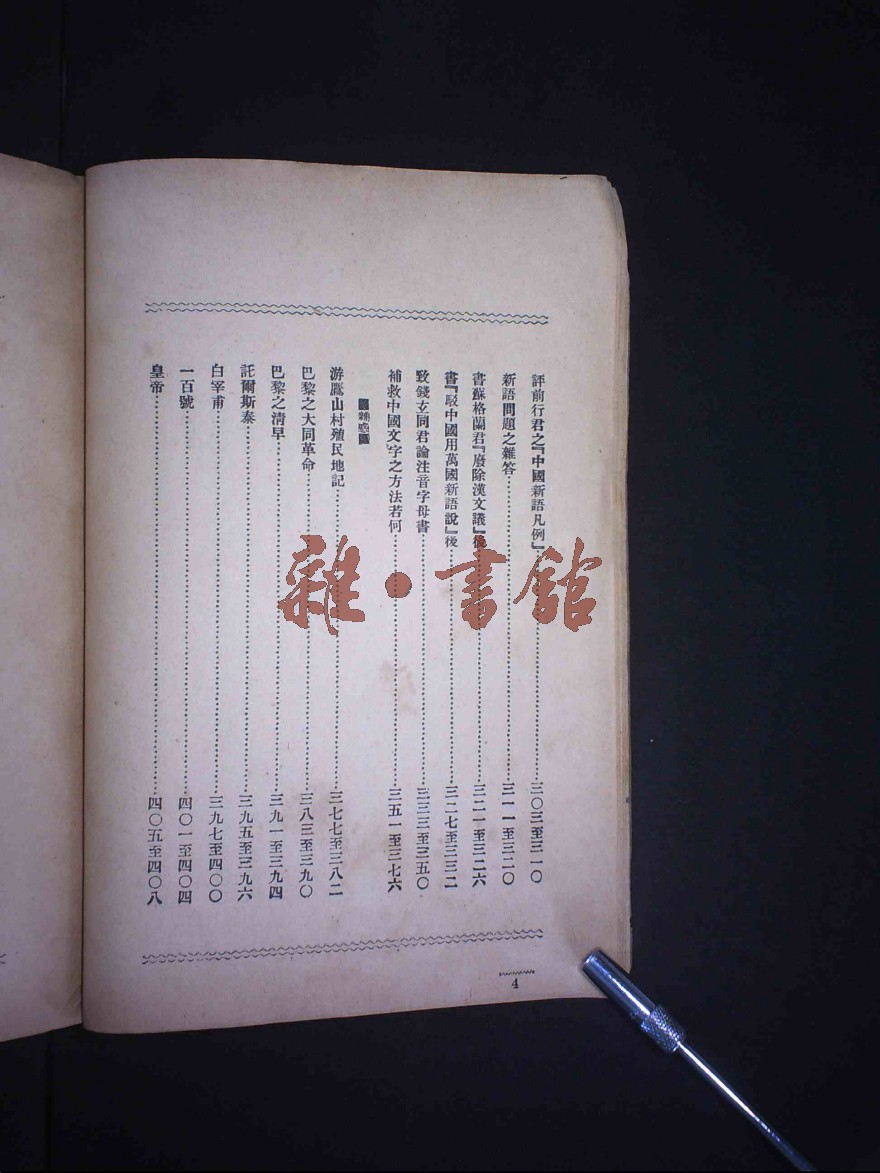 評前行君之『中國新語凡例』……三〇三至三一〇
新語問題之雜答……三一一至三二〇
書蘇格蘭君『廢除漢文議』後……三二一至三二六
書『駁中國用萬國新語說』後……三二七至三三二
致錢玄同君論注音字母書……三三三至三五〇
補救中國文字之方法若何……三五一至三七六
游鷹山村殖民地記……三七七至三八二
巴黎之大同革命……三八三至三九〇
巴黎之清早……三九一至三九四
託爾斯泰……三九五至三九六
白宰甫……三九七至四〇〇
一百號……四〇一至四〇四
皇帝……四〇五至四〇八
4
雜·書館